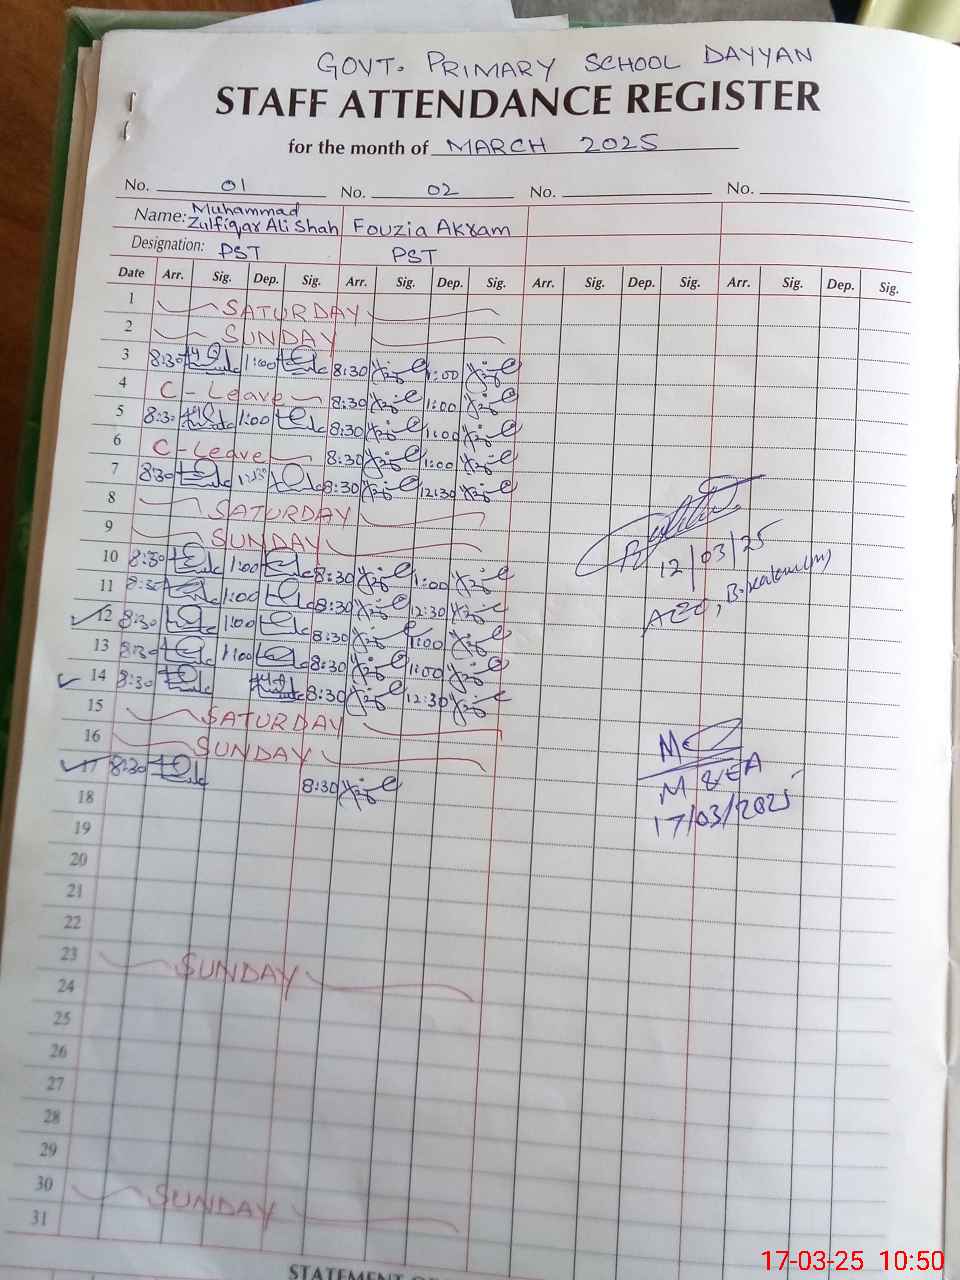 GOVT. PRIMARY SCHOOL DAYYAN
STAFF ATTENDANCE REGISTER
for the month of MARCH 2025
No. 01 No. 02 No. No.
Name: Muhammad Zulfiqar Ali Shah Fouzia Akram
Designation: PST PST
Date Arr. Sig. Dep. Sig. Arr. Sig. Dep. Sig. Arr. Sig. Dep. Sig. Arr. Sig. Dep. Sig.
1 SATURDAY
2 SUNDAY
3 8:30 1:00 8:30 1:00
4 C-Leave 8:30 1:00
5 8:30 1:00 8:30 1:00
6 C-Leave 8:30 1:00
7 8:30 8:30 12:30
8 SATURDAY
9 SUNDAY
10 8:30 1:00 8:30 1:00
11 8:30 1:00 8:30 12:30
12 8:30 1:00 8:30 1:00
13 8:30 1:00 8:30 1:00
14 8:30 8:30 12:30
15 SATURDAY
16 SUNDAY
17 8:30 8:30
18
19
20
21
22
23 SUNDAY
24
25
26
27
28
29
30 SUNDAY
31
12/03/25
AEO,
M&EA
17/03/2025
STATEMENT
17-03-25 10:50